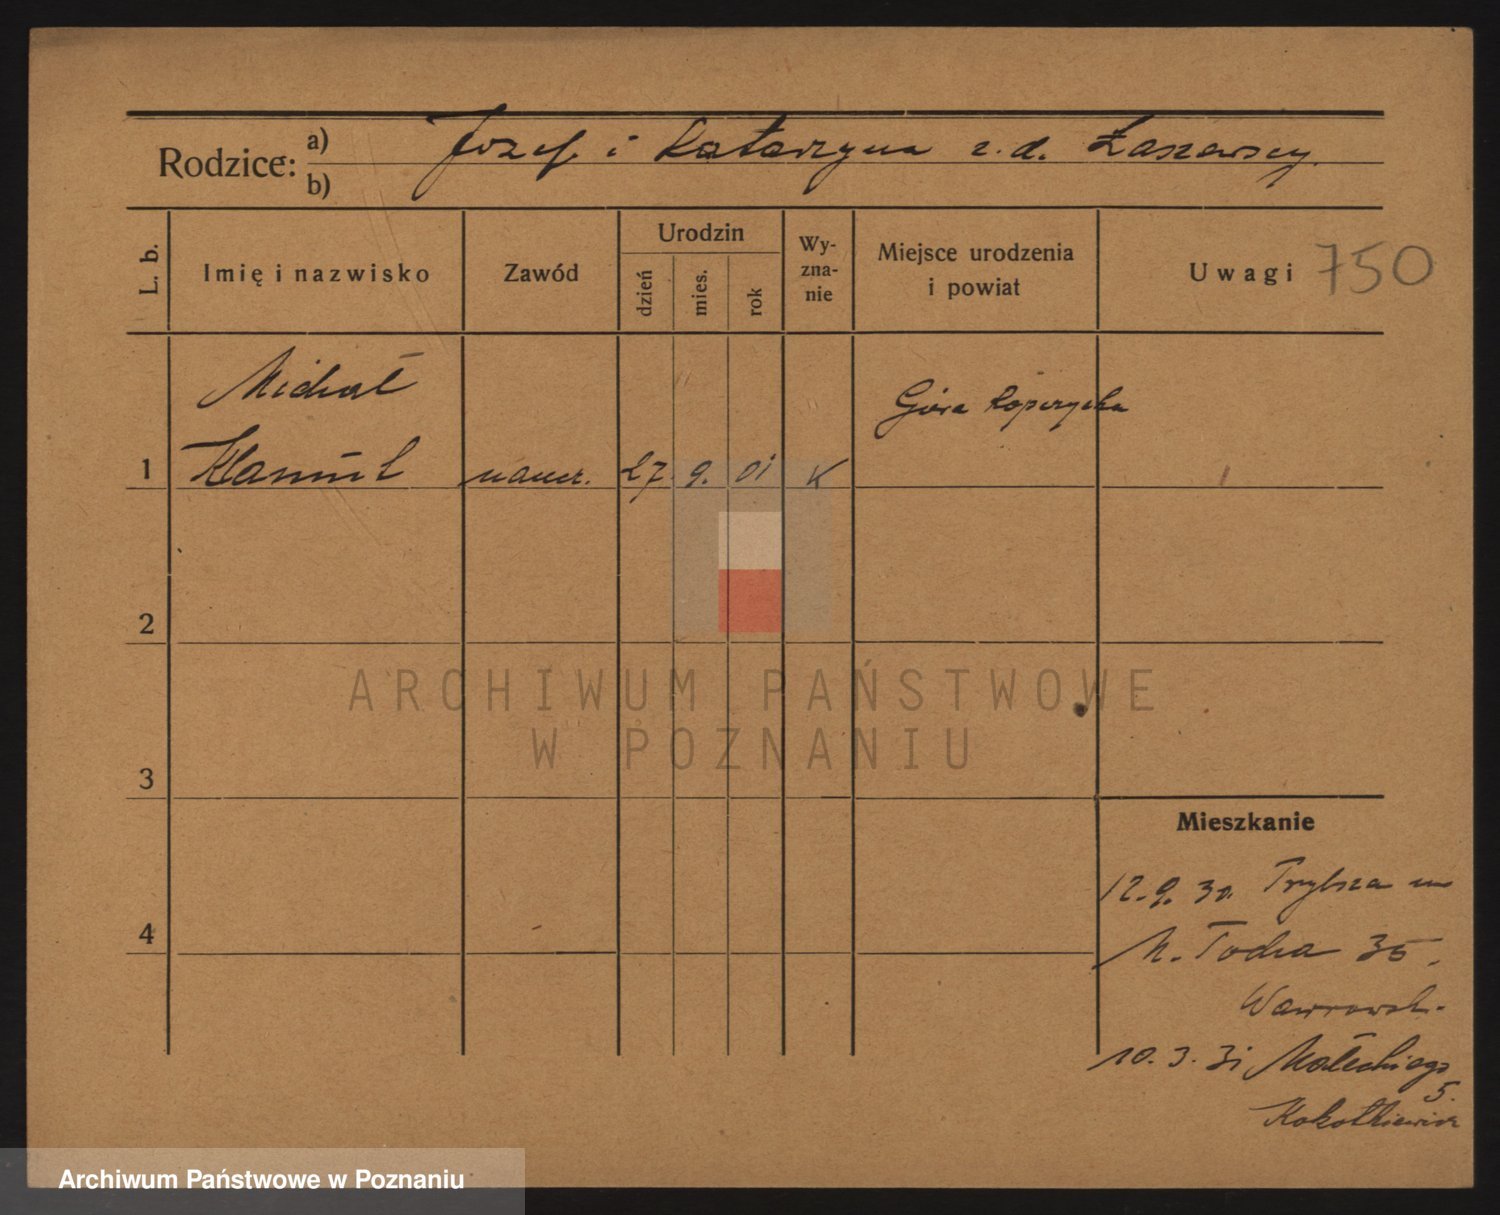 Rodzice:
a) Józef i Katarzyna z.d. Łaszewscy.
b)
L. b.
Imię i nazwisko
Zawód
Urodzin
dzień
mies.
rok
Wy-
zna-
nie
Miejsce urodzenia
i powiat
Uwagi 750
Michał
Góra Ropczycka
1 naucz. 27. 9. 01 K
2
3
4
Mieszkanie
12.9.30. Trybsza
M. Focha 35.
10.3.31 Małeckiego
5.
ARCHIWUM PAŃSTWOWE
W POZNANIU
Archiwum Państwowe w Poznaniu